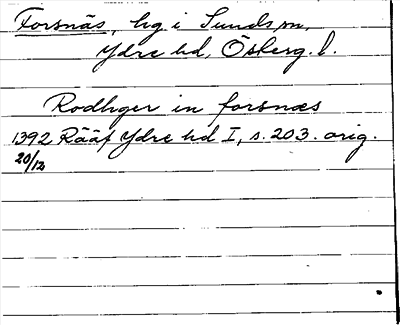 Forsnäs, hg. i Sunds sn,
Ydre hd, Ösberg. l.
Rodhger in forsnæs
1392 Rääf Ydre hd I, s. 203. orig.
20/12